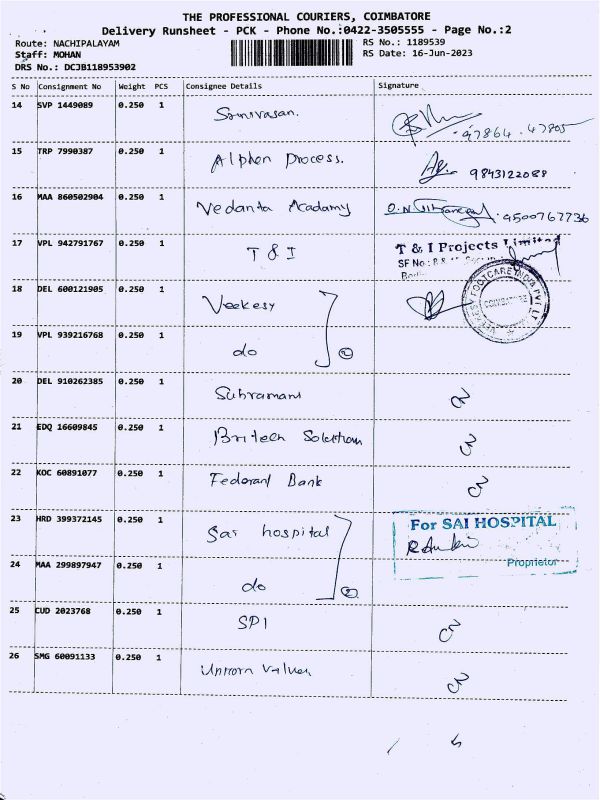 THE PROFESSIONAL COURIERS, COIMBATORE
Delivery Runsheet - PCK - Phone No.:0422-3505555 - Page No.:2
Route: NACHIPALAYAM RS No.: 1189539
Staff: MOHAN RS Date: 16-Jun-2023
DRS No.: DCJB118953902
S No Consignment No Weight PCS Consignee Details Signature
14 SVP 1449089 0.250 1 Srinivasan. 97864 47805
15 TRP 7990387 0.250 1 Alphen Process. 9843122088
16 MAA 860502904 0.250 1 Vedanta Acadamy 9500767736
17 VPL 942791767 0.250 1 T & I T & I Projects Limited
SF No.:
18 DEL 600121905 0.250 1 Veekesy VEEKESY FOOTCARE INDIA PVT LT COIMBATORE
19 VPL 939216768 0.250 1 do 2
20 DEL 910262385 0.250 1 Subramani
21 EDQ 16609845 0.250 1 Britech Solutions
22 KOC 60891077 0.250 1 Federal Bank
23 HRD 399372145 0.250 1 Sai hospital For SAI HOSPITAL
24 MAA 299897947 0.250 1 do 2 Proprietor
25 CUD 2023768 0.250 1 SPI
26 SMG 60091133 0.250 1 Unicorn Valves